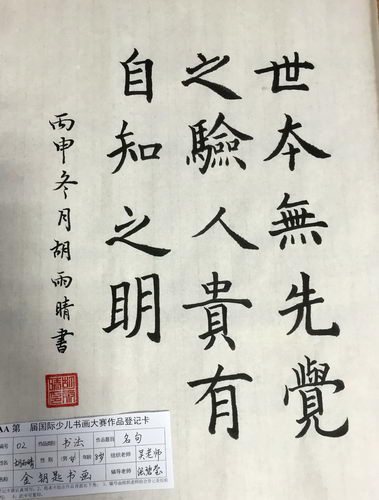 世本無先覺
之驗人貴有
自知之明
丙申冬月胡雨晴書
AA 第 届国际少儿书画大赛作品登记卡
编号 02 作品类别 书法 作品题目 名句
姓名 胡雨晴 性别 年龄 组织老师 吴老师
名称 金钥匙书画 辅导老师